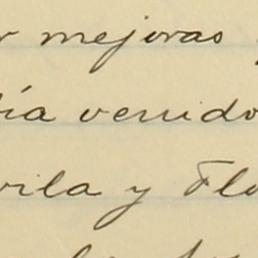 r mejoras y
ía venido
vila y Flo